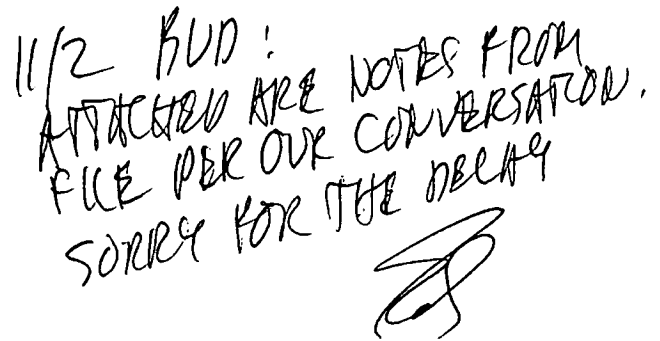 11/2 BUD:
ATTACHED ARE NOTES FROM
FILE PER OUR CONVERSATION.
SORRY FOR THE DELAY